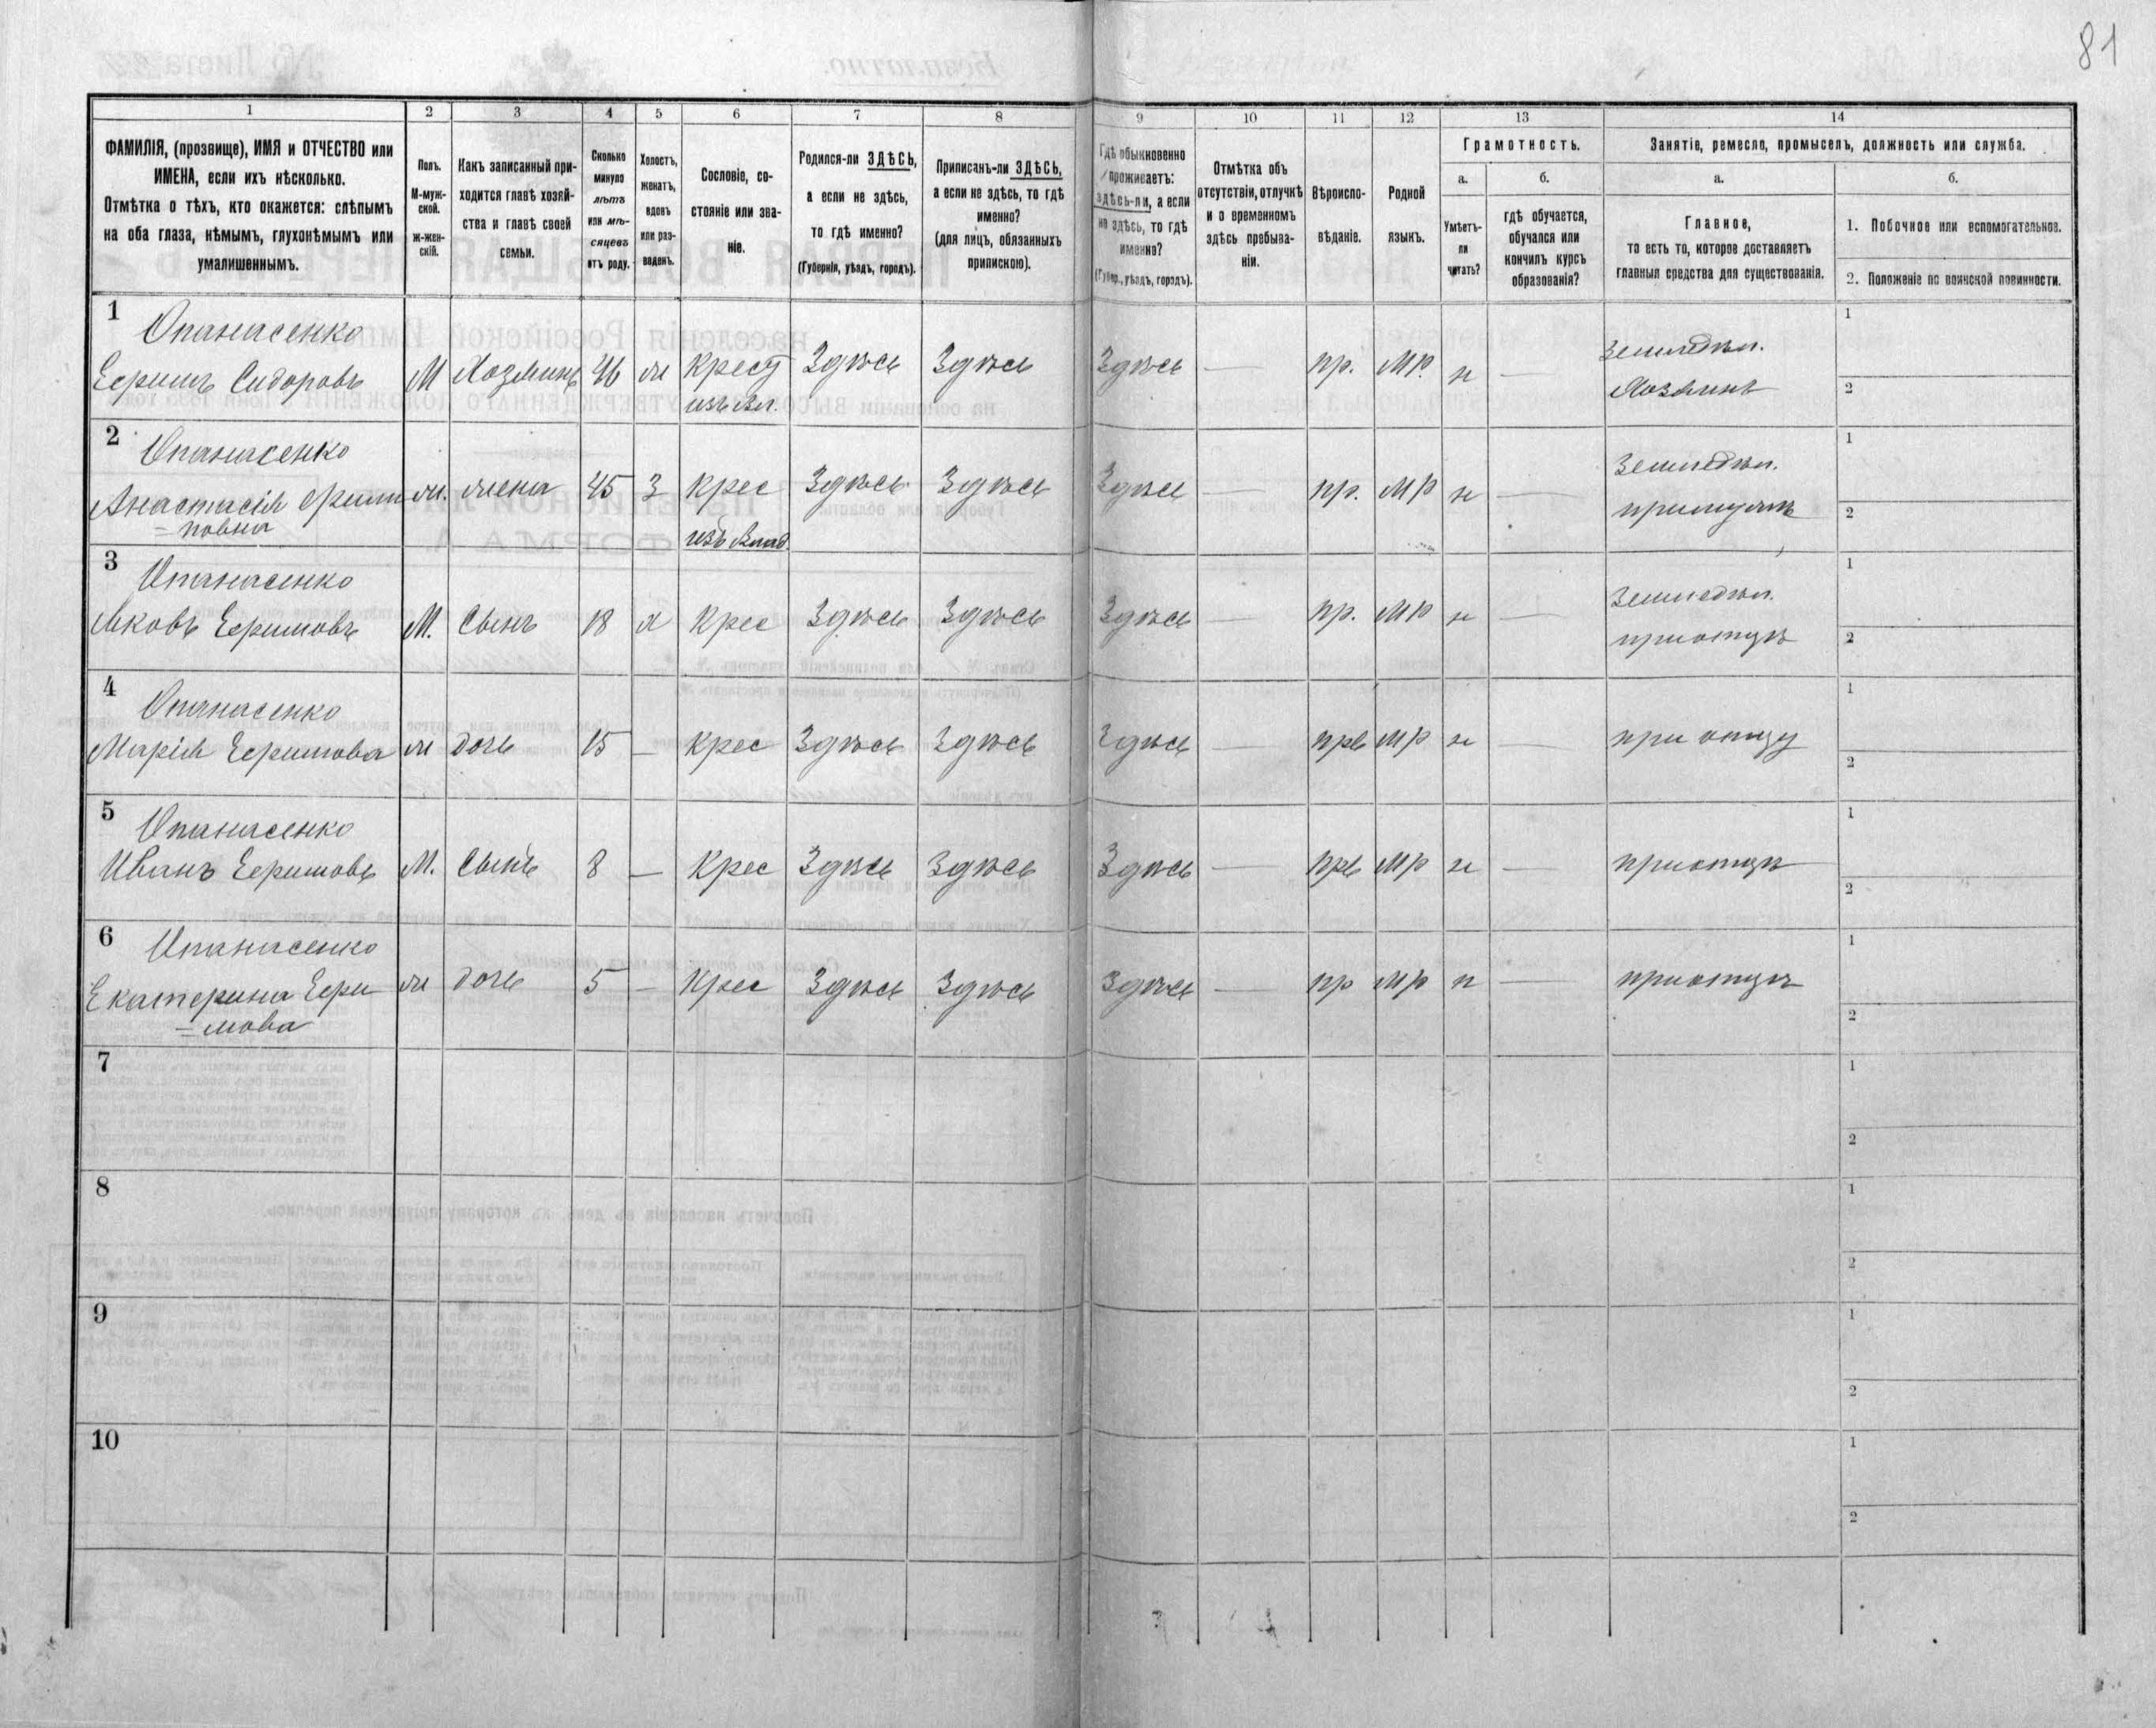 81
1 2 3 4 5 6 7 8 9 10 11 12 13 14
ФАМИЛІЯ, (прозвище), ИМЯ и ОТЧЕСТВО или
ИМЕНА, если ихъ нѣсколько.
Отмѣтка о тѣхъ, кто окажется: слѣпымъ
на оба глаза, нѣмымъ, глухонѣмымъ или
умалишеннымъ.
Полъ.
М-муж-
ской.
ж-жен-
скій.
Какъ записанный при-
ходится главѣ хозяй-
ства и главѣ своей
семьи.
Сколько
минуло
лѣтъ
или мѣ-
сяцевъ
отъ роду.
Холостъ,
женатъ,
вдовъ
или раз-
веденъ.
Сословіе, со-
стояніе или зва-
ніе.
Родился-ли ЗДѢСЬ,
а если не здѣсь,
то гдѣ именно?
(Губернія, уѣздъ, городъ).
Приписанъ-ли ЗДѢСЬ,
а если не здѣсь, то гдѣ
именно?
(для лицъ, обязанныхъ
припискою).
Гдѣ обыкновенно
проживаетъ:
здѣсь-ли, а если
не здѣсь, то гдѣ
именно?
(Губер., уѣздъ, городъ).
Отмѣтка объ
отсутствіи, отлучкѣ
и о временномъ
здѣсь пребыва-
ніи.
Вѣроиспо-
вѣданіе.
Родной
языкъ.
Грамотность.
а. б.
Умѣетъ-
ли
читать?
гдѣ обучается,
обучался или
кончилъ курсъ
образованія?
Занятіе, ремесло, промыселъ, должность или служба.
а. б.
Главное,
то есть то, которое доставляетъ
главныя средства для существованія.
1. Побочное или вспомогательное.
2. Положеніе по воинской повинности.
1 Опанасенко
Ефримъ Сидоровъ М Хозяинъ 46 ж Крест Здѣсь Здѣсь Здѣсь — пр. МР. н — Земледѣл. 1
изъ Вл. Хозяинъ 2
2 Опанасенко
Анастасія Филип ж. жена 45 З Крес Здѣсь Здѣсь Здѣсь — пр. МР н — Земледѣл. 1
=повна изъ Влад. примужѣ 2
3 Опанасенко
Яковъ Ефримовъ М. Сынъ 18 х Крес Здѣсь Здѣсь Здѣсь — пр. МР н — Земледѣл. 1
приотцѣ 2
4 Опанасенко
Марія Ефримова ж дочь 15 — Крес Здѣсь Здѣсь Здѣсь — прв МР н — при отцу 1
2
5 Опанасенко
Иванъ Ефримовъ М. Сынъ 8 — Крес Здѣсь Здѣсь Здѣсь — прв МР н — приотцѣ 1
2
6 Опанасенко
Екатерина Ефри ж дочь 5 — Крес Здѣсь Здѣсь Здѣсь — пр МР н — приотцѣ 1
=мова 2
7 1
2
8 1
2
9 1
2
10 1
2